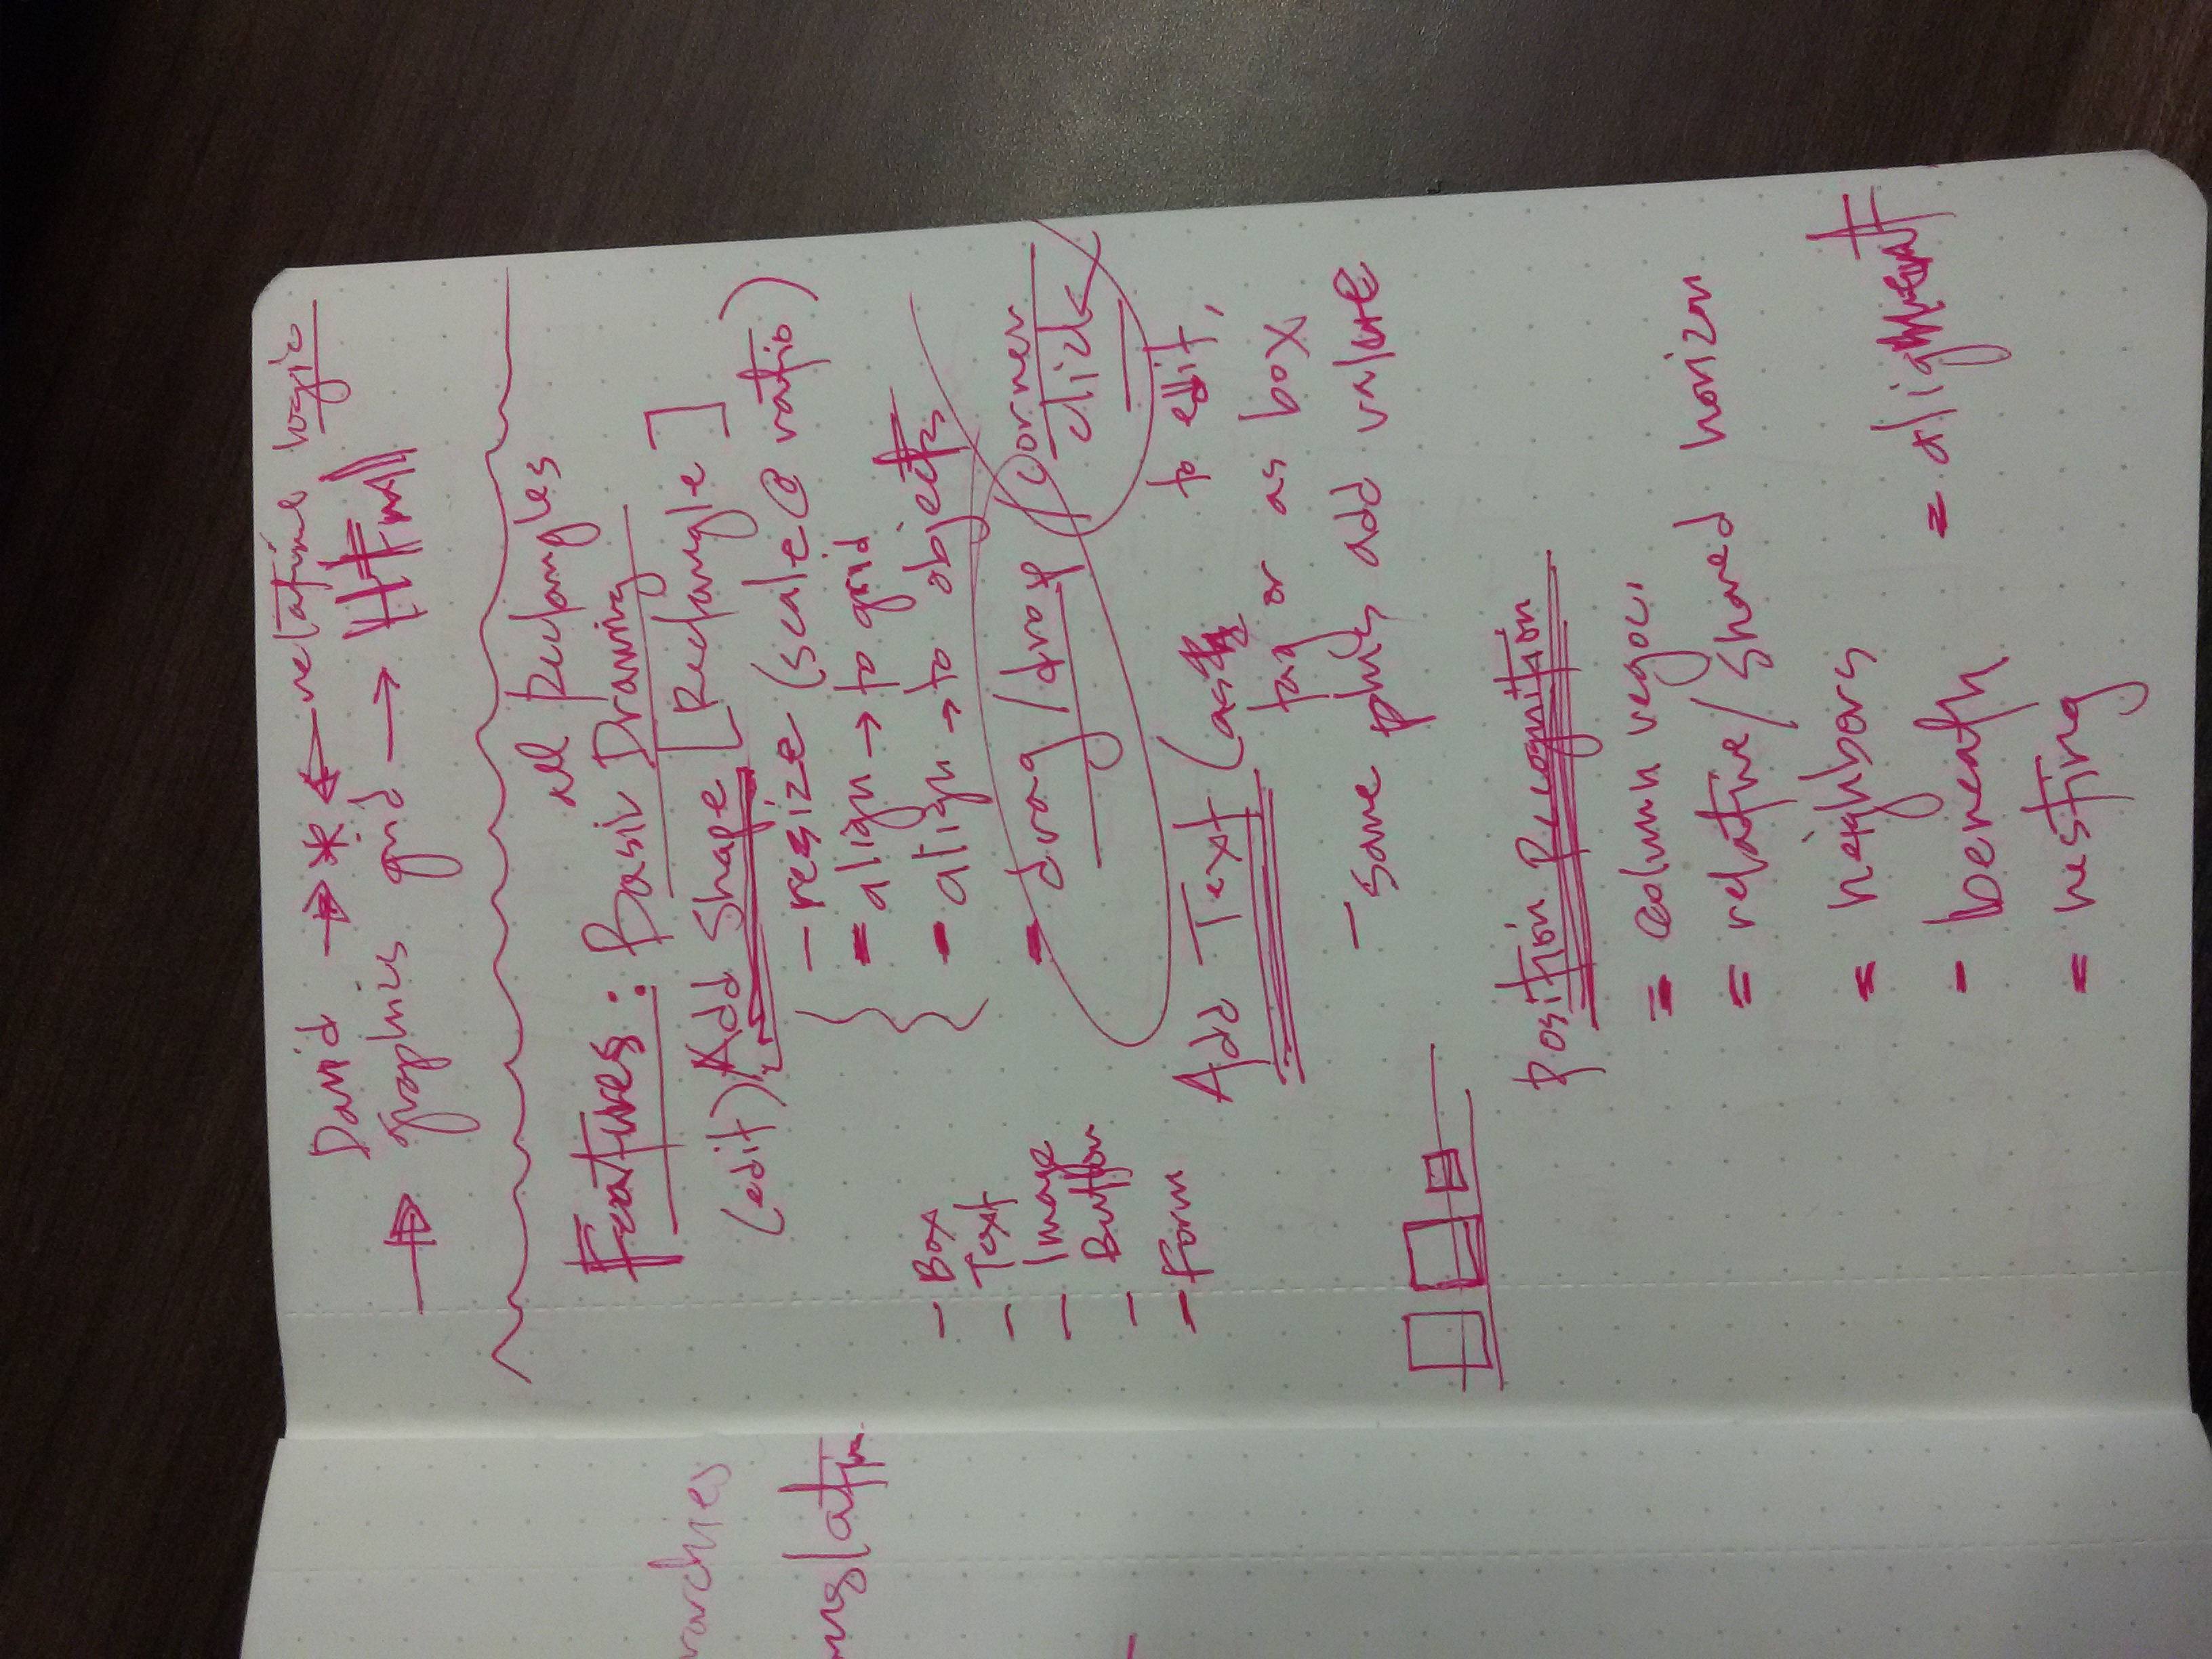 David →* ← relative logic
→ graphics grid → HTml
all Rectangles
Features: Basic Drawing
(edit) Add Shape [Rectangle]
- resize (scale @ ratio)
- align → to grid
- align → to objects
- drag/drop / corner
click
to edit,
- Box
- Text
- Image
- Button
- Form
Add Text (as
tag or as box
- same plus add value
Position Recognition
= column recog.
= relative/shared horizon
= neighbors
- beneath = alignment
= nesting
rarchies